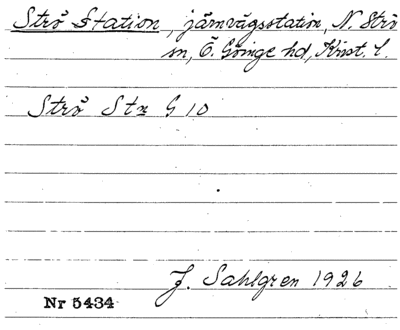 Strö Station, järnvägsstation, N. Strö
sn, Ö. Göinge hd, Krist. l.
Strö Stn G 10
J. Sahlgren 1926
Nr 5434